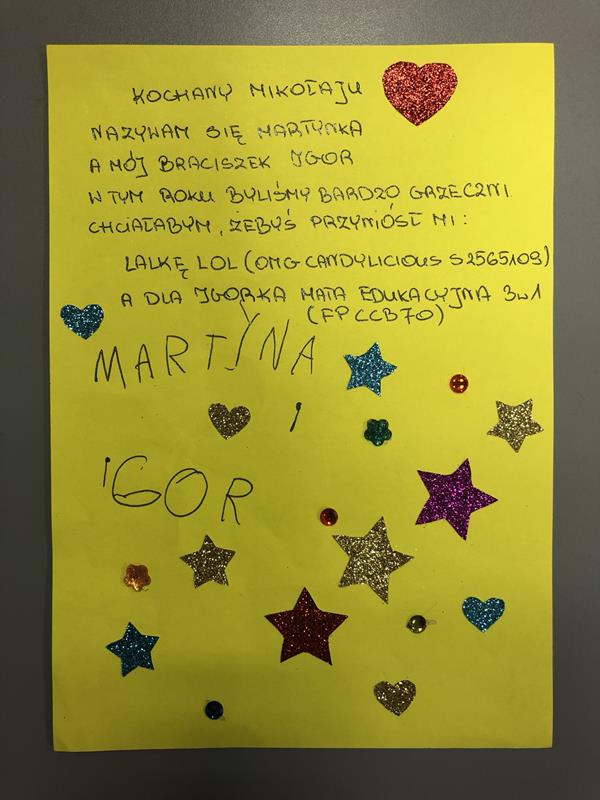 KOCHANY MIKOŁAJU
NAZYWAM SIĘ MARTYNKA
A MÓJ BRACISZEK IGOR
W TYM ROKU BYLIŚMY BARDZO GRZECZNI.
CHCIAŁABYM, ŻEBYŚ PRZYNIÓSŁ MI:
LALKĘ LOL (OMG CANDYLICIOUS S2565109)
A DLA IGORKA MATA EDUKACYJNA 3w1
(FPCCB70)
MARTYNA
i
IGOR